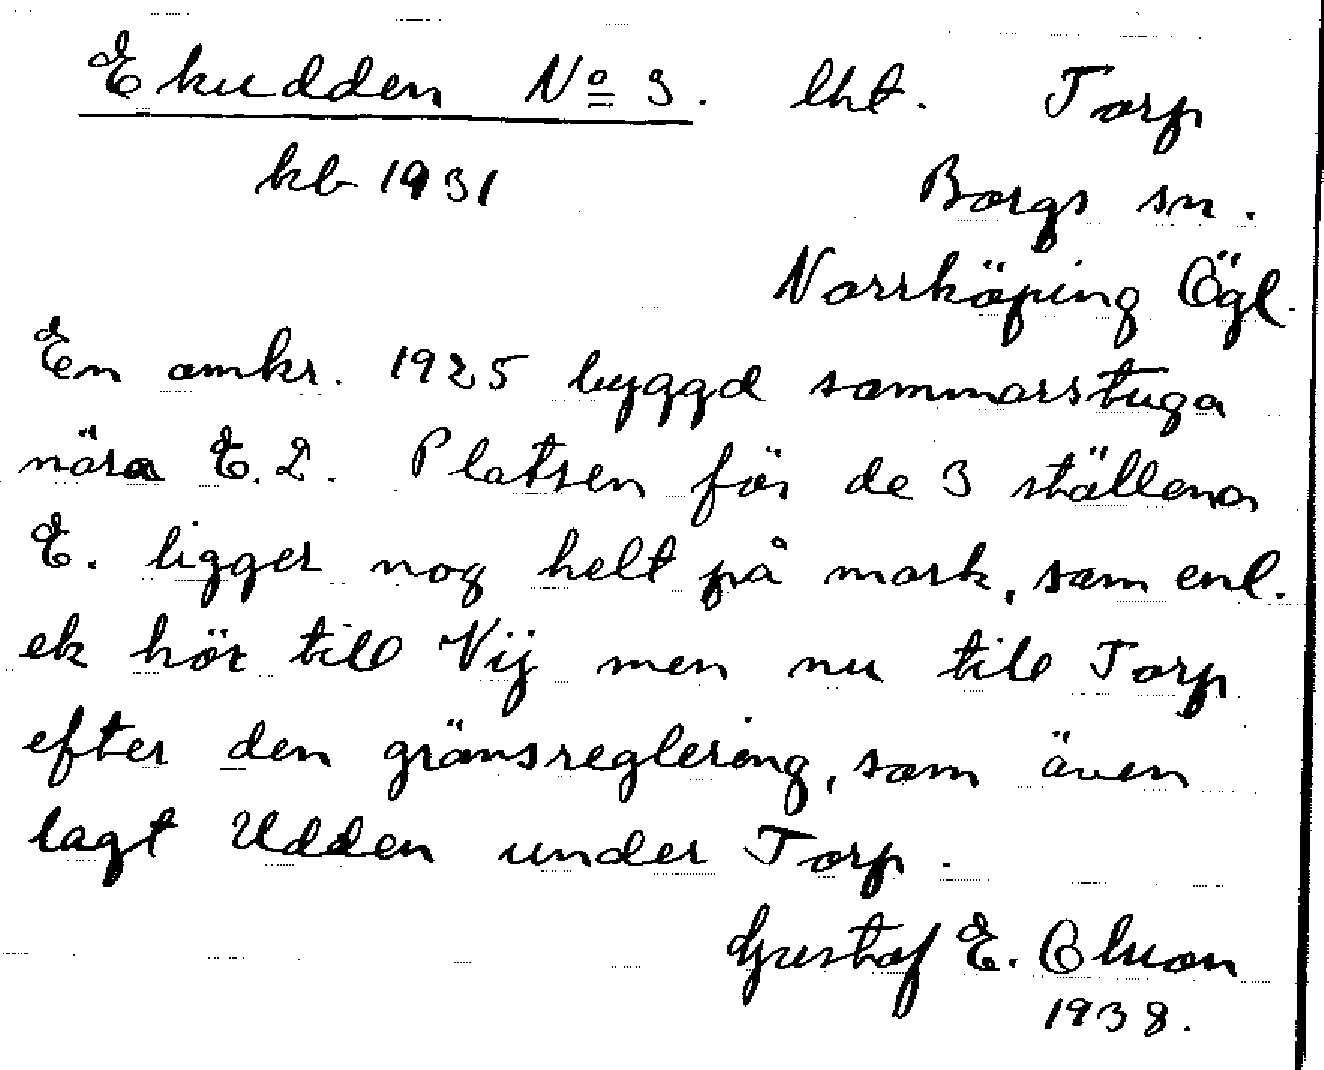 Ekudden No 3. lht. Torp
kb 1931 Borgs sn.
Norrköping Ögl.
En omkr. 1925 byggd sommarstuga
nära E. 2. Platsen för de 3 ställena
E. ligger nog helt på mark, som enl.
ek hör till Vij men nu till Torp
efter den gränsreglering, som även
lagt Udden under Torp.
Gustaf E. Olsson
1938.